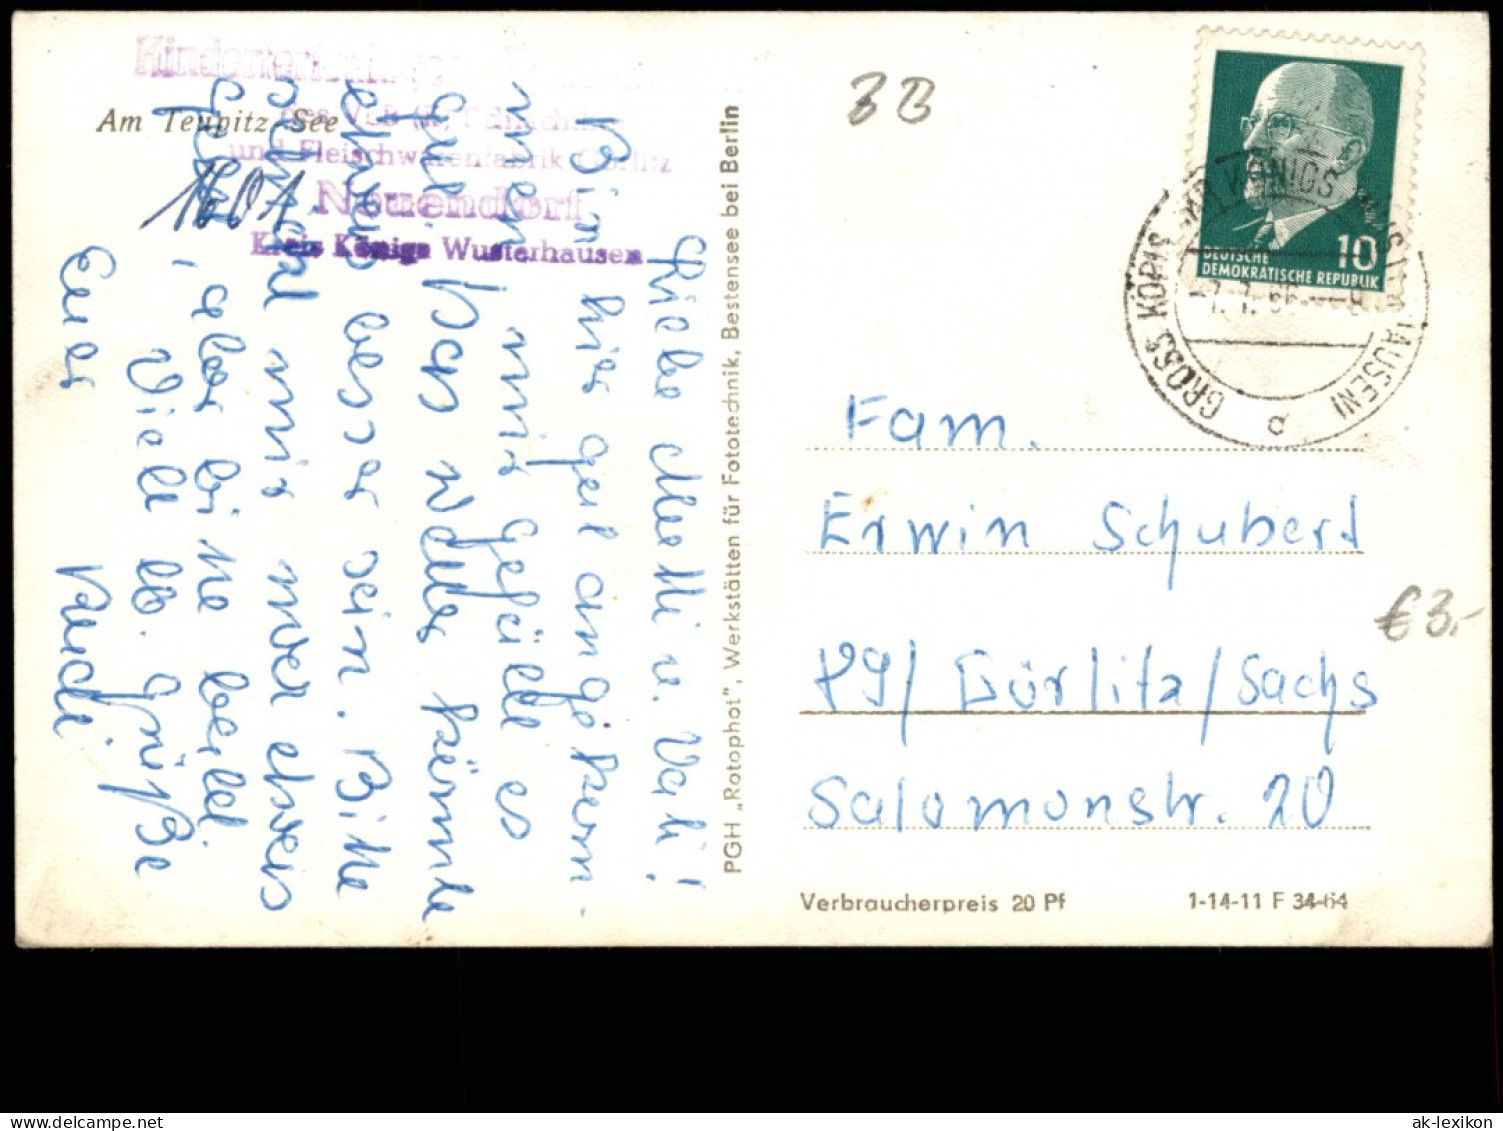 Kinderferienlager
des VEB (K) Schlachthof
und Fleischwarenfabrik Görlitz
Neuendorf
Kreis Königs Wusterhausen
Am Teupitz-See
1601
Liebe Mutti u. Vati!
Bin hier gut angekom-
men, mir gefällt es
gut. Das Wetter könnte
etwas besser sein. Bitte
schickt mir etwas
Geld, aber bitte bald.
Viele lb. Grüße
Eure
PGH „Rotophot", Werkstätten für Fototechnik, Bestensee bei Berlin
BB
DEUTSCHE
DEMOKRATISCHE REPUBLIK
10
GROSS KÖRIS
KÖNIGS WUSTERHAUSEN)
a
Fam.
Erwin Schubert
89/ Görlitz/Sachs
Salomonstr. 20
€ 3,-
Verbraucherpreis 20 Pf
1-14-11 F 34-64
ak-lexikon